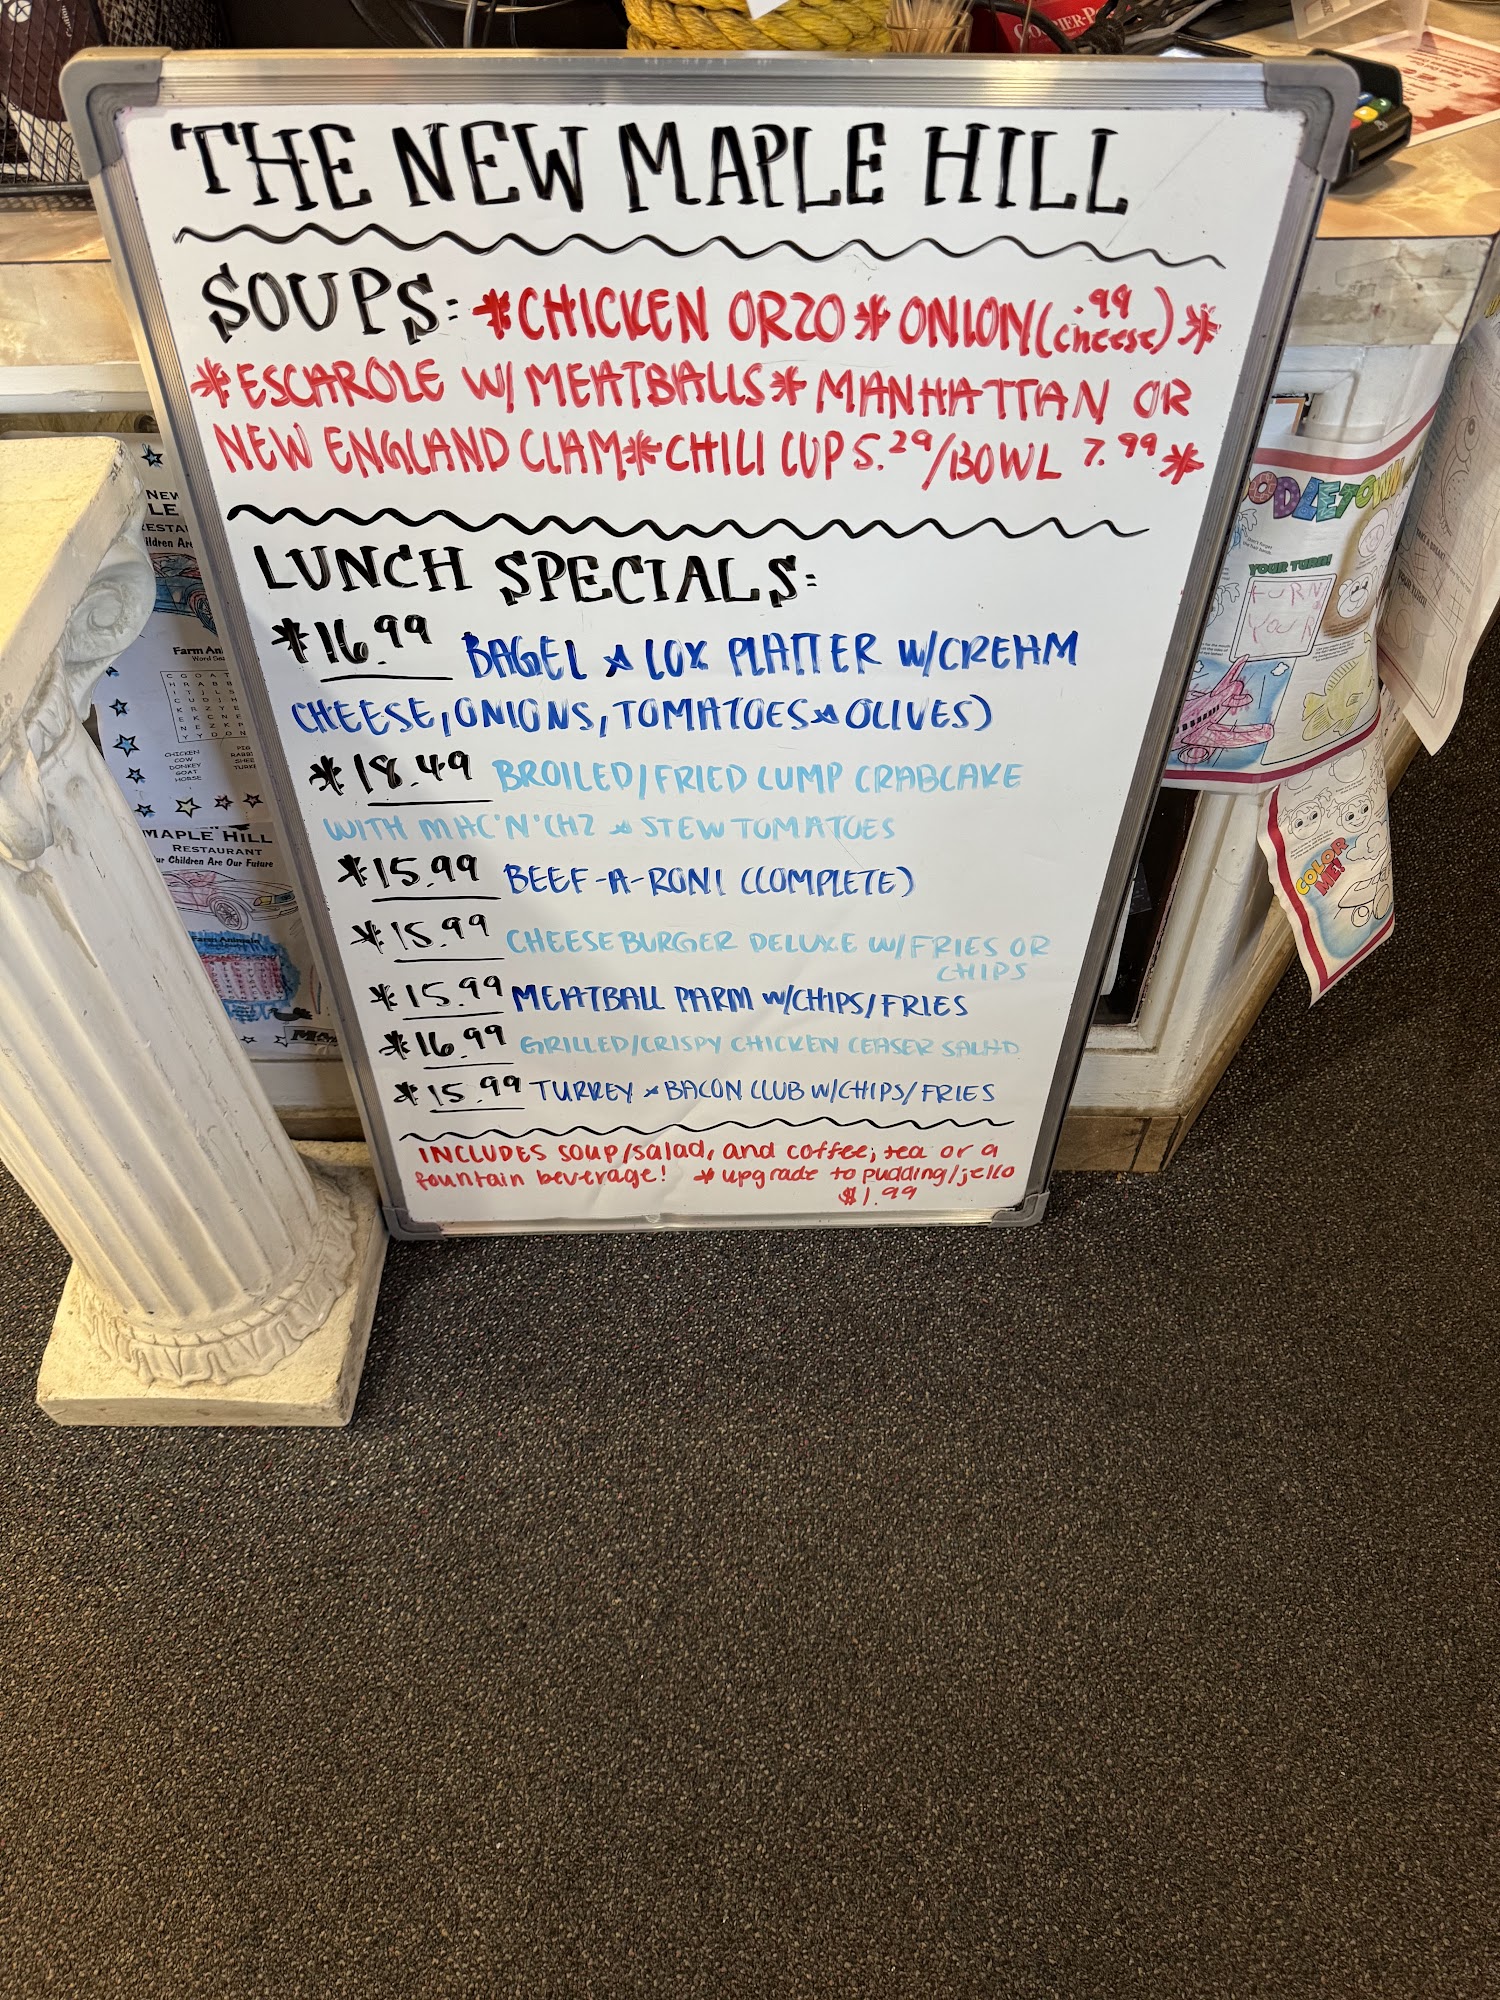 THE NEW MAPLE HILL
SOUPS: *CHICKEN ORZO * ONION (.99 cheese) *
*ESCAROLE W/ MEATBALLS* MANHATTAN OR
NEW ENGLAND CLAM * CHILI CUP 5.29/BOWL 7.99 *
LUNCH SPECIALS:
*16.99 BAGEL & LOX PLATTER W/CREAM
CHEESE, ONIONS, TOMATOES & OLIVES)
*18.49 BROILED/FRIED LUMP CRABCAKE
WITH MAC'N'CHZ & STEW TOMATOES
*15.99 BEEF-A-RONI (COMPLETE)
*15.99 CHEESEBURGER DELUXE W/FRIES OR
CHIPS
*15.99 MEATBALL PARM W/CHIPS/FRIES
*16.99 GRILLED/CRISPY CHICKEN CEASER SALAD
*15.99 TURKEY & BACON CLUB W/CHIPS/FRIES
INCLUDES SOUP/salad, and coffee, tea or a
fountain beverage! * upgrade to pudding/jello
$1.99
NEW
LE
Farm Ani
Word Sea
CHICKEN
COW
DONKEY
GOAT
HORSE
MAPLE HILL
RESTAURANT
ur Children Are Our Future
Farm Animals
ODLETOWN
YOUR TURN!
COLOR
ME!